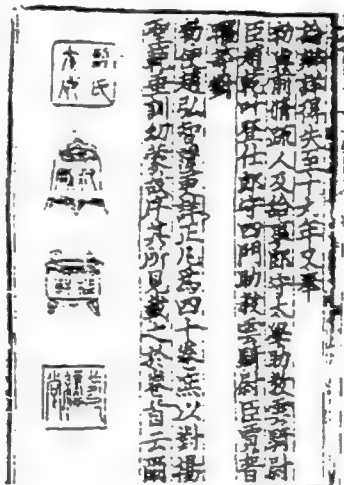 論辨詳得失至十六年又奉
勅與前脩疏人及給事郎守太學助教雲騎尉
臣趙乾叶登仕郎守四門助教雲騎尉臣賈普
曜等對
勅使趙弘智覆更詳正凡為四十卷庶以對揚
聖範垂訓幼蒙故序其所見載之於卷首云爾
劉氏文府